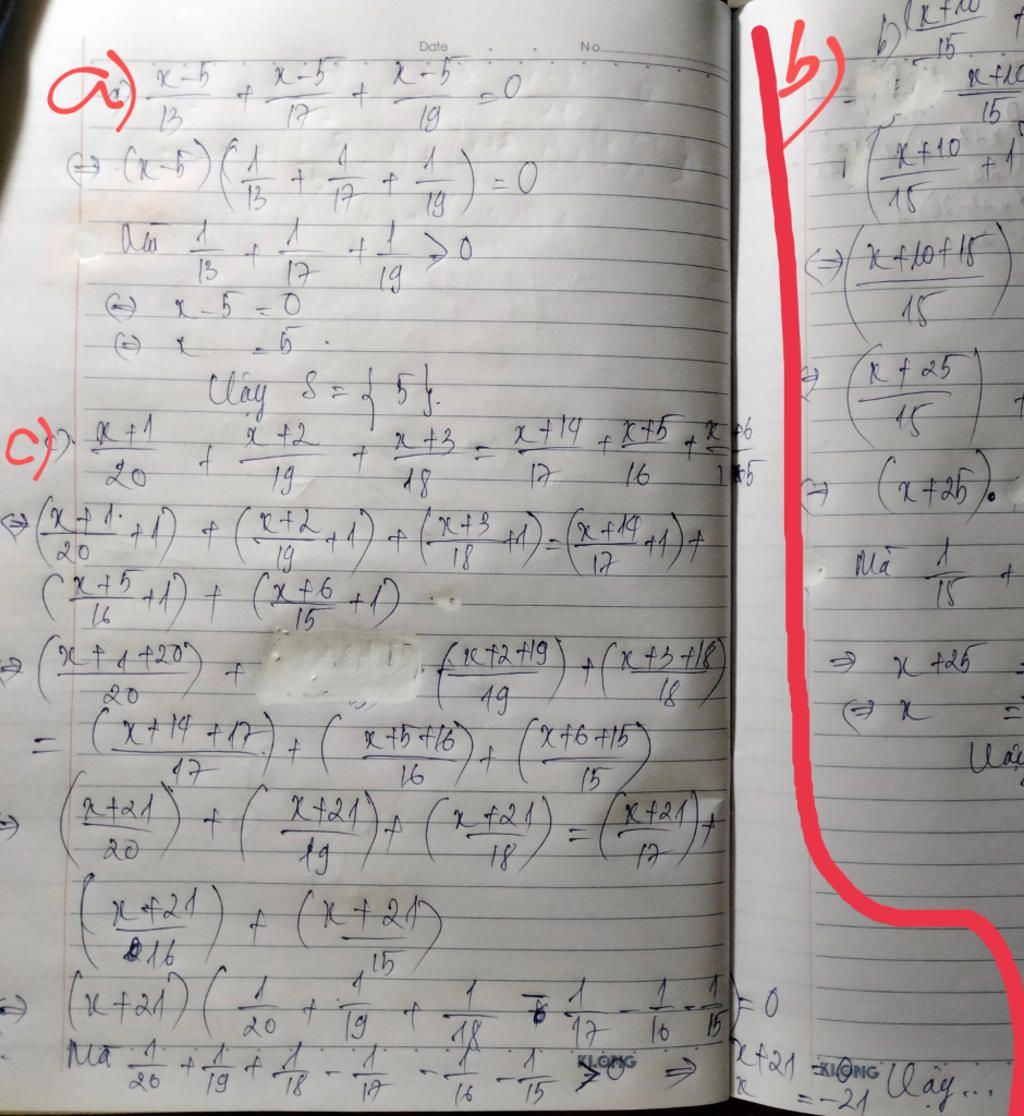 Date No.
a) (x-5)/13 + (x-5)/17 + (x-5)/19 = 0
⇔ (x-5)(1/13 + 1/17 + 1/19) = 0
Mà 1/13 + 1/17 + 1/19 > 0
⇔ x-5 = 0
⇔ x = 5.
Vậy S = { 5 }.
c) (x+1)/20 + (x+2)/19 + (x+3)/18 = (x+14)/17 + (x+5)/16 + (x+6)/15
⇔ ((x+1)/20 + 1) + ((x+2)/19 + 1) + ((x+3)/18 + 1) = ((x+14)/17 + 1) +
((x+5)/16 + 1) + ((x+6)/15 + 1)
⇒ ((x+1+20)/20) + ((x+2+19)/19) + ((x+3+18)/18)
= ((x+14+17)/17) + ((x+5+16)/16) + ((x+6+15)/15)
⇒ ((x+21)/20) + ((x+21)/19) + ((x+21)/18) = ((x+21)/17) +
((x+21)/16) + ((x+21)/15)
⇒ (x+21)(1/20 + 1/19 + 1/18 - 1/17 - 1/16 - 1/15) = 0
Mà 1/20 + 1/19 + 1/18 - 1/17 - 1/16 - 1/15 > 0 ⇒ x+21 = 0 Vậy...
x = -21
KLONG
KLONG
b) b) (x+10)/15 +
= (x+10)/15
((x+10)/15 + 1
⇔ ((x+10+15)/15)
⇔ ((x+25)/15) +
⇔ (x+25).
Mà 1/15 +
⇒ x+25 =
⇔ x =
Vậy